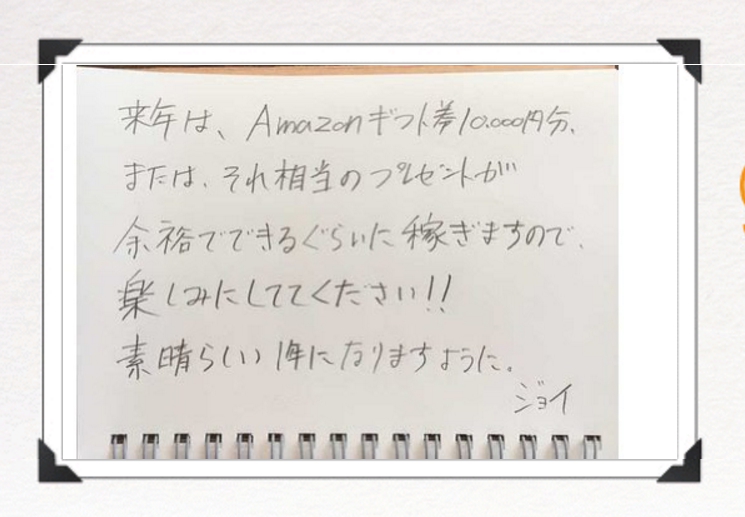 来年は、Amazonギフト券10.000円分、
または、それ相当のプレゼントが
余裕でできるぐらいに稼ぎますので、
楽しみにしててください!!
素晴らしい1年になりますように。
ジョイ